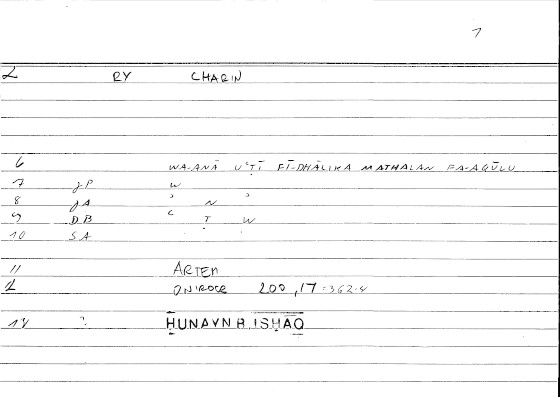 1
2 RY CHARIN
6 WA-ANĀ UʿṬĪ FĪ-DHĀLIKA MATHALAN FA-AQŪLU
7 J.P W
8 JA ʾ N ʾ
9 D.B ʿ Ṭ W
10 SA
11 ARTEM
2 ONIROCR 200,17=362.4
14 ? ḤUNAYN B. ISḤĀQ